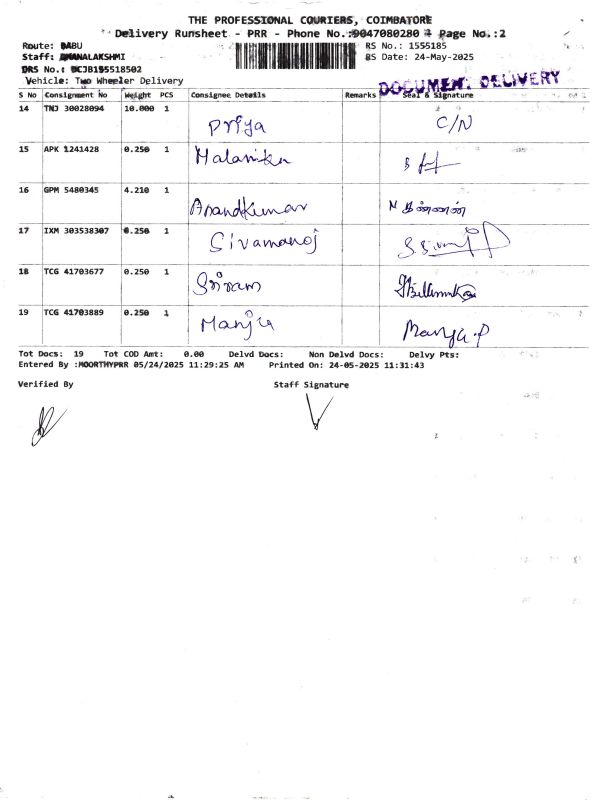 THE PROFESSIONAL COURIERS, COIMBATORE
Delivery Runsheet - PRR - Phone No.:9047080280 Page No.:2
Route: BABU RS No.: 1555185
Staff: DHANALAKSHMI BS Date: 24-May-2025
DRS No.: DCJB155518502
Vehicle: Two Wheeler Delivery
DOCUMENT DELIVERY
S No Consignment No Weight PCS Consignee Details Remarks Seal & Signature
14 TNJ 30028094 10.000 1 Priya C/N
15 APK 1241428 0.250 1
16 GPM 5480345 4.210 1 Anandkumar
17 IXM 303538307 0.250 1 Sivamanoj
18 TCG 41703677 0.250 1 Sriram
19 TCG 41703889 0.250 1 Manju Manju.P
Tot Docs: 19 Tot COD Amt: 0.00 Delvd Docs: Non Delvd Docs: Delvy Pts:
Entered By :MOORTHYPRR 05/24/2025 11:29:25 AM Printed On: 24-05-2025 11:31:43
Verified By Staff Signature